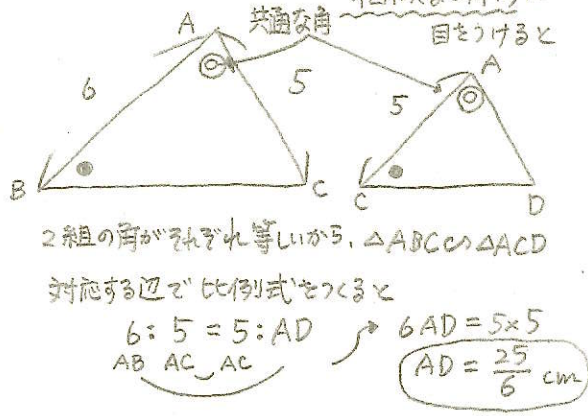 共通な角
目をつけると
A
6
5
B
C
A
5
C
D
2組の角がそれぞれ等しいから、△ABC∽△ACD
対応する辺で比例式をつくると
6:5=5:AD
AB AC AC
6AD=5×5
AD=25/6 cm